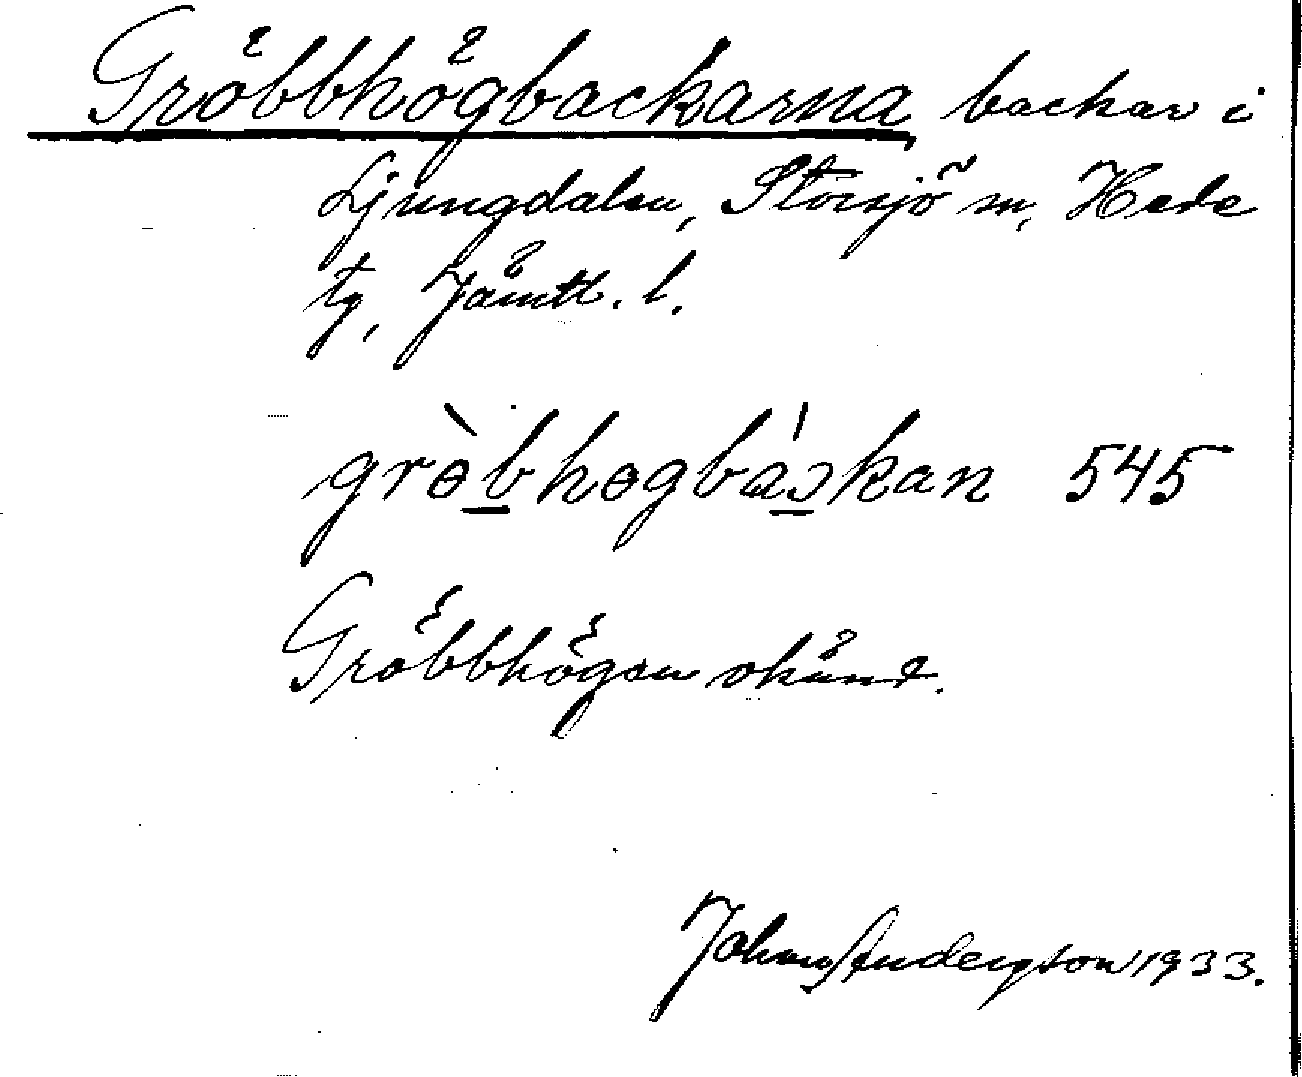 Gröbbhögbackarna backar i
Ljungdalen, Storsjö sn, Hede
tg, Jämtl. l.
grɵ̀bhɵgbáɔkan 545
Gröbbhögen okänt.
Johans Andersson 1933.